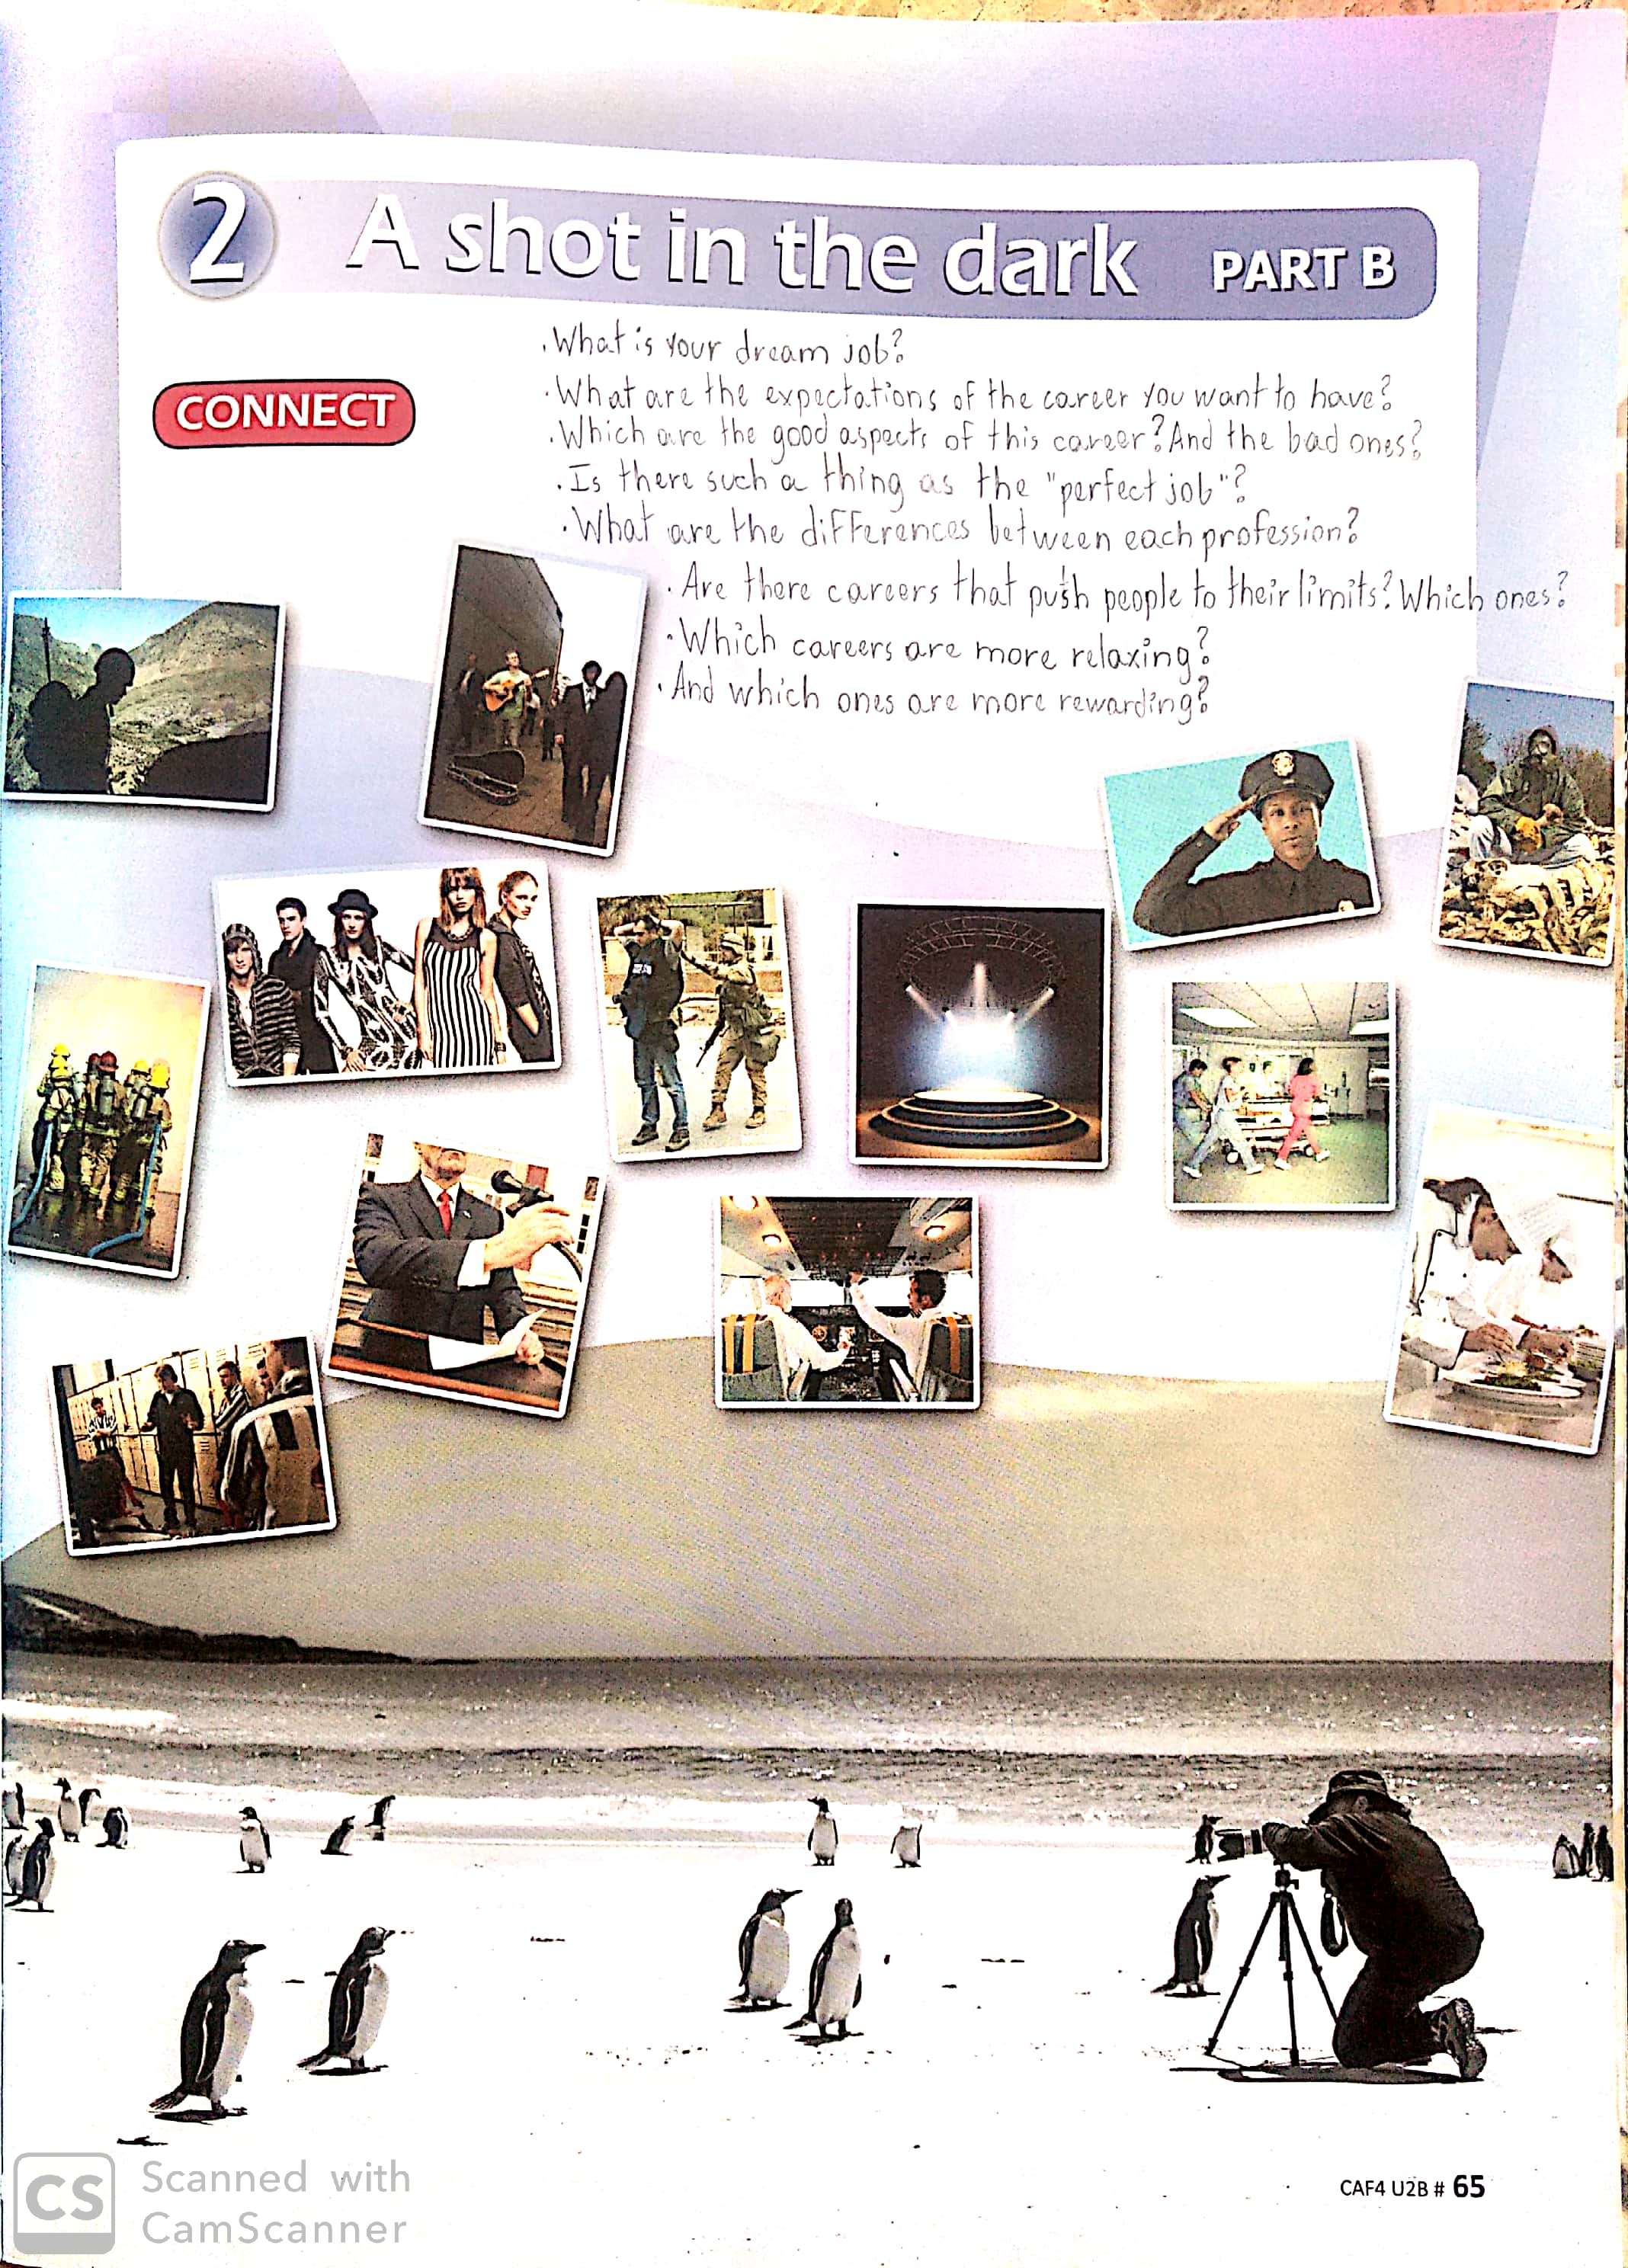 2 A shot in the dark PART B
CONNECT
. What is your dream job?
. What are the expectations of the career you want to have?
. Which are the good aspects of this career? And the bad ones?
. Is there such a thing as the "perfect job"?
. What are the differences between each profession?
. Are there careers that push people to their limits? Which ones?
. Which careers are more relaxing?
. And which ones are more rewarding?
CAF4 U2B # 65
CS Scanned with
CamScanner